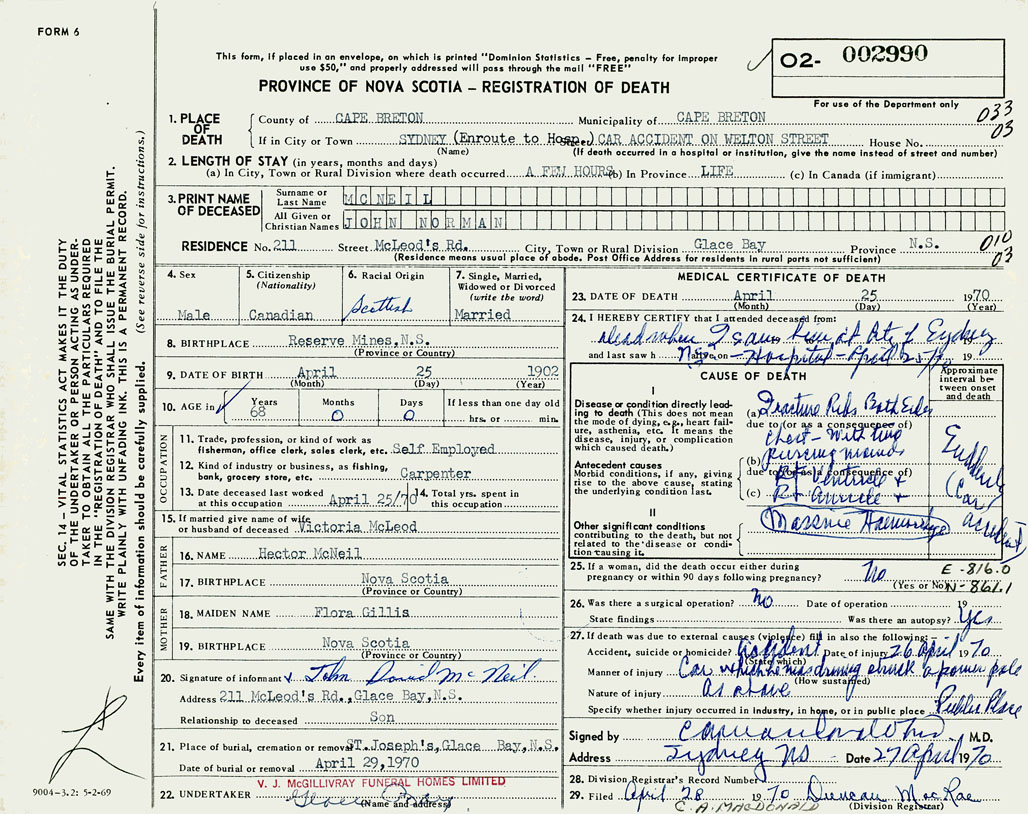 FORM 6
This form, if placed in an envelope, on which is printed "Dominion Statistics — Free, penalty for improper
use $50," and properly addressed will pass through the mail "FREE"
O2- 002990
PROVINCE OF NOVA SCOTIA — REGISTRATION OF DEATH
For use of the Department only
033
03
1. PLACE OF DEATH
County of CAPE BRETON Municipality of CAPE BRETON
If in City or Town SYDNEY (Enroute to Hosp.) CAR ACCIDENT ON WELTON STREET House No.
(Name) (If death occurred in a hospital or institution, give the name instead of street and number)
2. LENGTH OF STAY (in years, months and days)
(a) In City, Town or Rural Division where death occurred A FEW HOURS (b) In Province LIFE (c) In Canada (if immigrant)
3. PRINT NAME OF DECEASED
Surname or Last Name MCNEIL
All Given or Christian Names JOHN NORMAN
RESIDENCE No. 211 Street McLeod's Rd. City, Town or Rural Division Glace Bay Province N.S.
(Residence means usual place of abode. Post Office Address for residents in rural parts not sufficient)
010
03
SEC. 14 — VITAL STATISTICS ACT MAKES IT THE DUTY
OF THE UNDERTAKER OR PERSON ACTING AS UNDER-
TAKER TO OBTAIN ALL THE PARTICULARS REQUIRED
IN THE "REGISTRATION OF DEATH" AND TO FILE THE
SAME WITH THE DIVISION REGISTRAR WHO SHALL ISSUE THE BURIAL PERMIT.
WRITE PLAINLY WITH UNFADING INK. THIS IS A PERMANENT RECORD.
Every item of information should be carefully supplied. (See reverse side for instructions.)
4. Sex
Male
5. Citizenship
(Nationality)
Canadian
6. Racial Origin
Scottish
7. Single, Married,
Widowed or Divorced
(write the word)
Married
8. BIRTHPLACE Reserve Mines, N.S.
(Province or Country)
9. DATE OF BIRTH April 25 1902
(Month) (Day) (Year)
10. AGE in Years 68 Months 0 Days 0 If less than one day old
hrs. or min.
OCCUPATION
11. Trade, profession, or kind of work as
fisherman, office clerk, sales clerk, etc. Self Employed
12. Kind of industry or business, as fishing,
bank, grocery store, etc. Carpenter
13. Date deceased last worked
at this occupation April 25/70
14. Total yrs. spent in
this occupation
15. If married give name of wife
or husband of deceased Victoria McLeod
FATHER
16. NAME Hector McNeil
17. BIRTHPLACE Nova Scotia
(Province or Country)
MOTHER
18. MAIDEN NAME Flora Gillis
19. BIRTHPLACE Nova Scotia
(Province or Country)
20. Signature of informant John David McNeil
Address 211 McLeod's Rd., Glace Bay, N.S.
Relationship to deceased Son
21. Place of burial, cremation or removal ST. Joseph's, Glace Bay, N.S.
Date of burial or removal April 29, 1970
V. J. McGILLIVRAY FUNERAL HOMES LIMITED
22. UNDERTAKER Glace Bay
(Name and address)
9004-3.2: 5-2-69
MEDICAL CERTIFICATE OF DEATH
23. DATE OF DEATH April 25 1970
(Month) (Day) (Year)
24. I HEREBY CERTIFY that I attended deceased from:
dead when I saw him at City of Sydney
and last saw h alive on Hospital - April 25/70 19
CAUSE OF DEATH
Approximate
interval be-
tween onset
and death
I
Disease or condition directly lead-
ing to death (This does not mean
the mode of dying, e.g., heart fail-
ure, asthenia, etc. It means the
disease, injury, or complication
which caused death.)
(a) Fracture Ribs Both Sides
due to (or as a consequence of)
chest - with
Antecedent causes
Morbid conditions, if any, giving
rise to the above cause, stating
the underlying condition last.
(b)
due to (or as a consequence of)
Rt Ventricle +
(c) Rt auricle +
Massive Haemorrhage
(Car accident)
II
Other significant conditions
contributing to the death, but not
related to the disease or condi-
tion causing it.
25. If a woman, did the death occur either during
pregnancy or within 90 days following pregnancy? No
(Yes or No)
E-816.0
N-861.1
26. Was there a surgical operation? No Date of operation 19
State findings Was there an autopsy? Yes
27. If death was due to external causes (violence) fill in also the following:—
Accident, suicide or homicide? accident Date of injury 26 April 1970
(State which)
Manner of injury Car which he was driving struck a power pole
(How sustained)
Nature of injury As above
Specify whether injury occurred in industry, in home, or in public place Public Place
Signed by M.D.
Address Sydney NS Date 27 April 1970
28. Division Registrar's Record Number
29. Filed April 28 1970 Duncan MacRae
C. A. MACDONALD (Division Registrar)